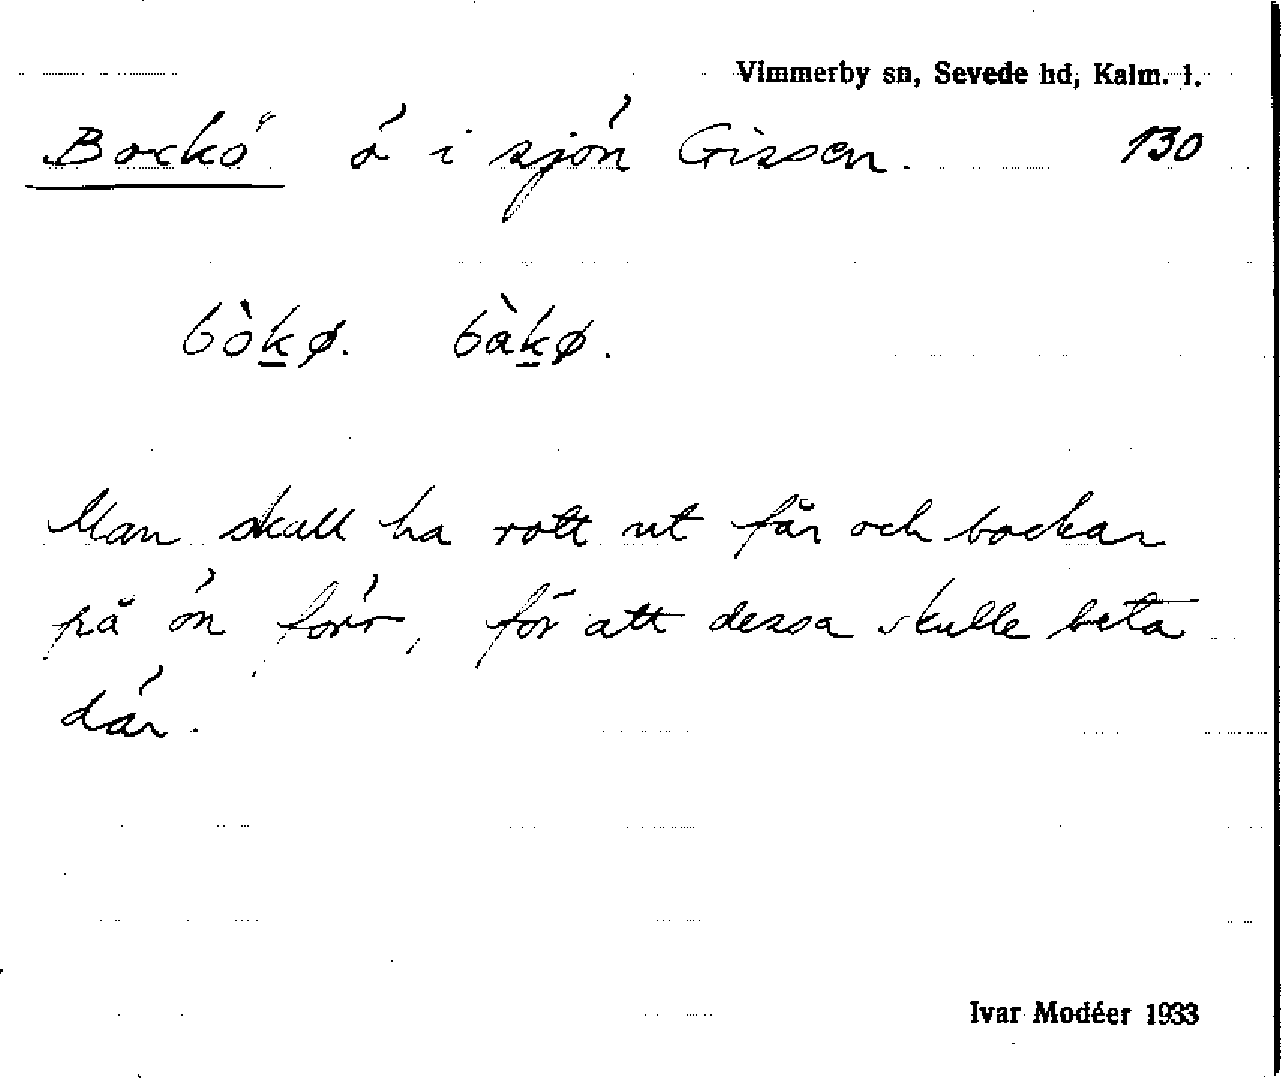 Vimmerby sn, Sevede hd, Kalm. l.
Bockö ö i sjön Gissen. 130
bòk̲ø. bàk̲ø.
Man skall ha rott ut får och bockar
på ön förr, för att dessa skulle beta
där.
Ivar Modéer 1933